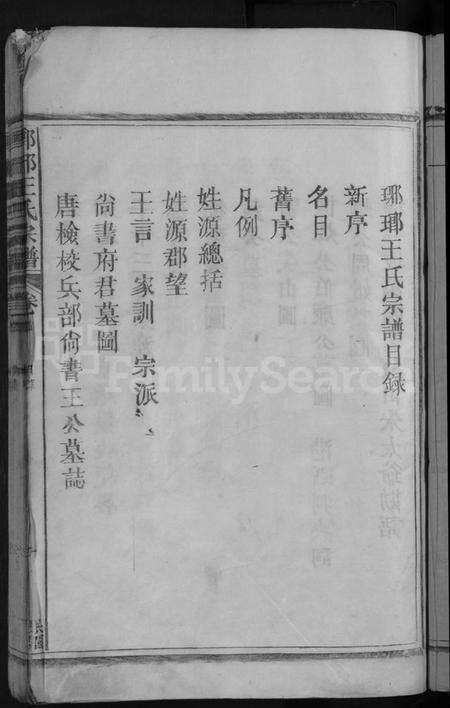 瑯琊王氏宗譜目録
新序
名目
舊序
凡例
姓源總括
姓源郡望
王言 家訓 宗派
尙書府君墓圖
唐檢校兵部尙書王公墓誌
王氏宗譜
卷
FamilySearch